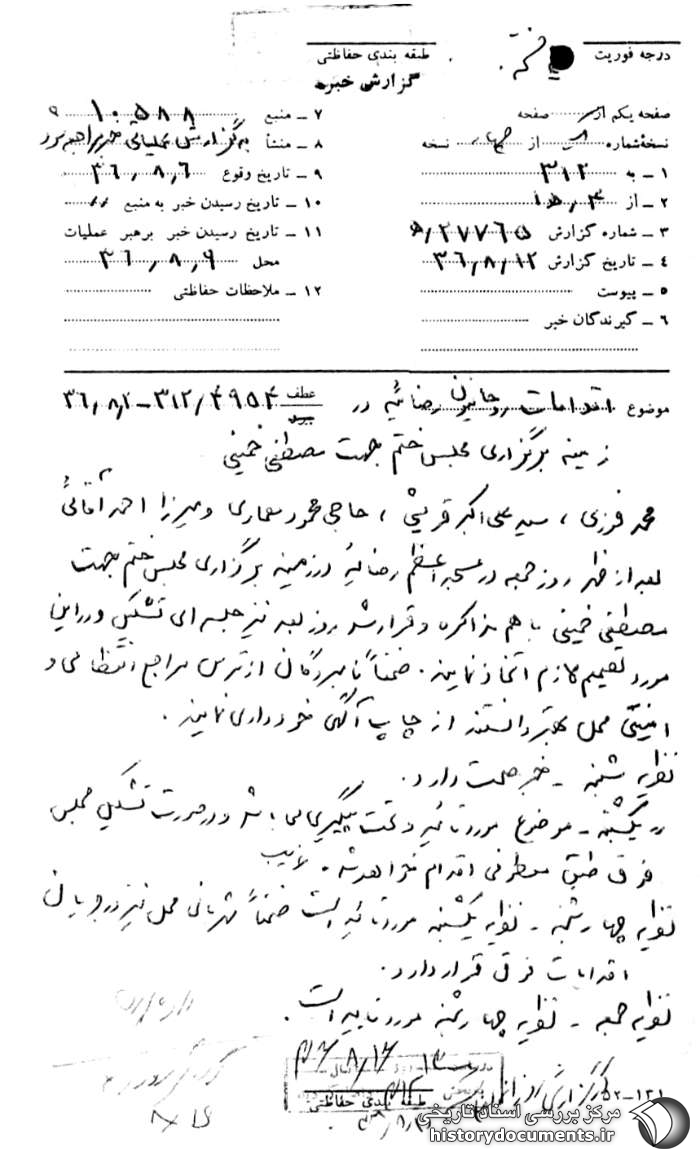 درجه فوریت
طبقه بندی حفاظتی
گزارش خبر
صفحه یکم از صفحه
نسخه شماره از چهار نسخه
۱ ـ به ۳۱۲
۲ ـ از ۱۵٫۴
۳ ـ شماره گزارش ۵٫۲۷۷۶۵
۴ ـ تاریخ گزارش ۳۶٫۸٫۱۲
۵ ـ پیوست
۶ ـ گیرندگان خبر
۷ ـ منبع ۱۰۵۸۸
۸ ـ منشأ به گزارش عملیاتی مراجعه شود
۹ ـ تاریخ وقوع ۳۶٫۸٫۶
۱۰ ـ تاریخ رسیدن خبر به منبع ״
۱۱ ـ تاریخ رسیدن خبر برهبر عملیات
محل ۳۶٫۸٫۹
۱۲ ـ ملاحظات حفاظتی
موضوع اقدامات روحانیون رضائیه در عطف ۳۱۲/۴۹۵۴-۳۶٫۸٫۲
زمینه برگزاری مجلس ختم جهت مصطفی خمینی
محمد فوزی ، سید علی اکبر قریشی ، حاجی محمود معماری و میرزا احمد آقائی
بعد از ظهر روز جمعه در مسجد اعظم رضائیه در زمینه برگزاری مجلس ختم جهت
مصطفی خمینی با هم مذاکره و قرار شد روز بعد نیز جلسه ای تشکیل و در این
مورد تصمیم لازم اتخاذ نمایند . ضمناً نامبردگان از ترس مراجع انتظامی و
امنیتی محل بهتر دانستند از چاپ آگهی خودداری نمایند .
نظریه شنبه ـ خبر صحت دارد .
یکشنبه ـ موضوع مورد تائید و تحت پیگیری می باشد و در صورت تشکیل مجلس
فوق طبق معطوفی اقدام خواهد شد .
نظریه چهارشنبه ـ نظریه یکشنبه مورد تائید است ضمناً شهربانی محل نیز در جریان
اقدامات فوق قرار دارد .
نظریه جمعه ـ نظریه چهارشنبه مورد تایید است .
طبقه بندی حفاظتی
۵۲-۱۳۱
مرکز بررسی اسناد تاریخی
historydocuments.ir